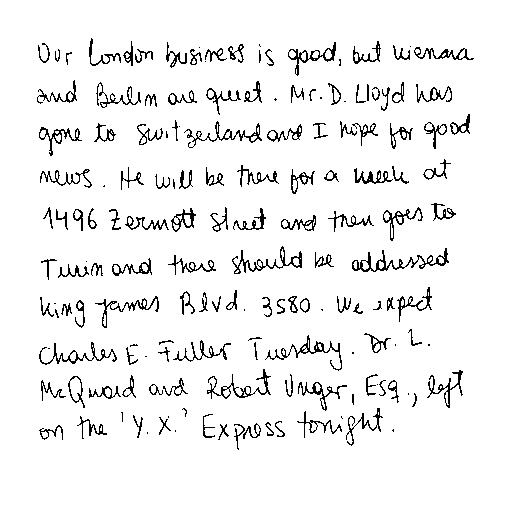 Our London business is good, but wienna
and Berlin are quiet. Mr. D. Lloyd has
gone to Switzerland and I hope for good
news. He will be there for a week at
1496 Zermott Street and then goes to
Turin and there should be addressed
king james Blvd. 3580. We expect
Charles E. Fuller Tuesday. Dr. L.
McQuaid and Robert Unger, Esq., left
on the 'Y. X.' Express tonight.